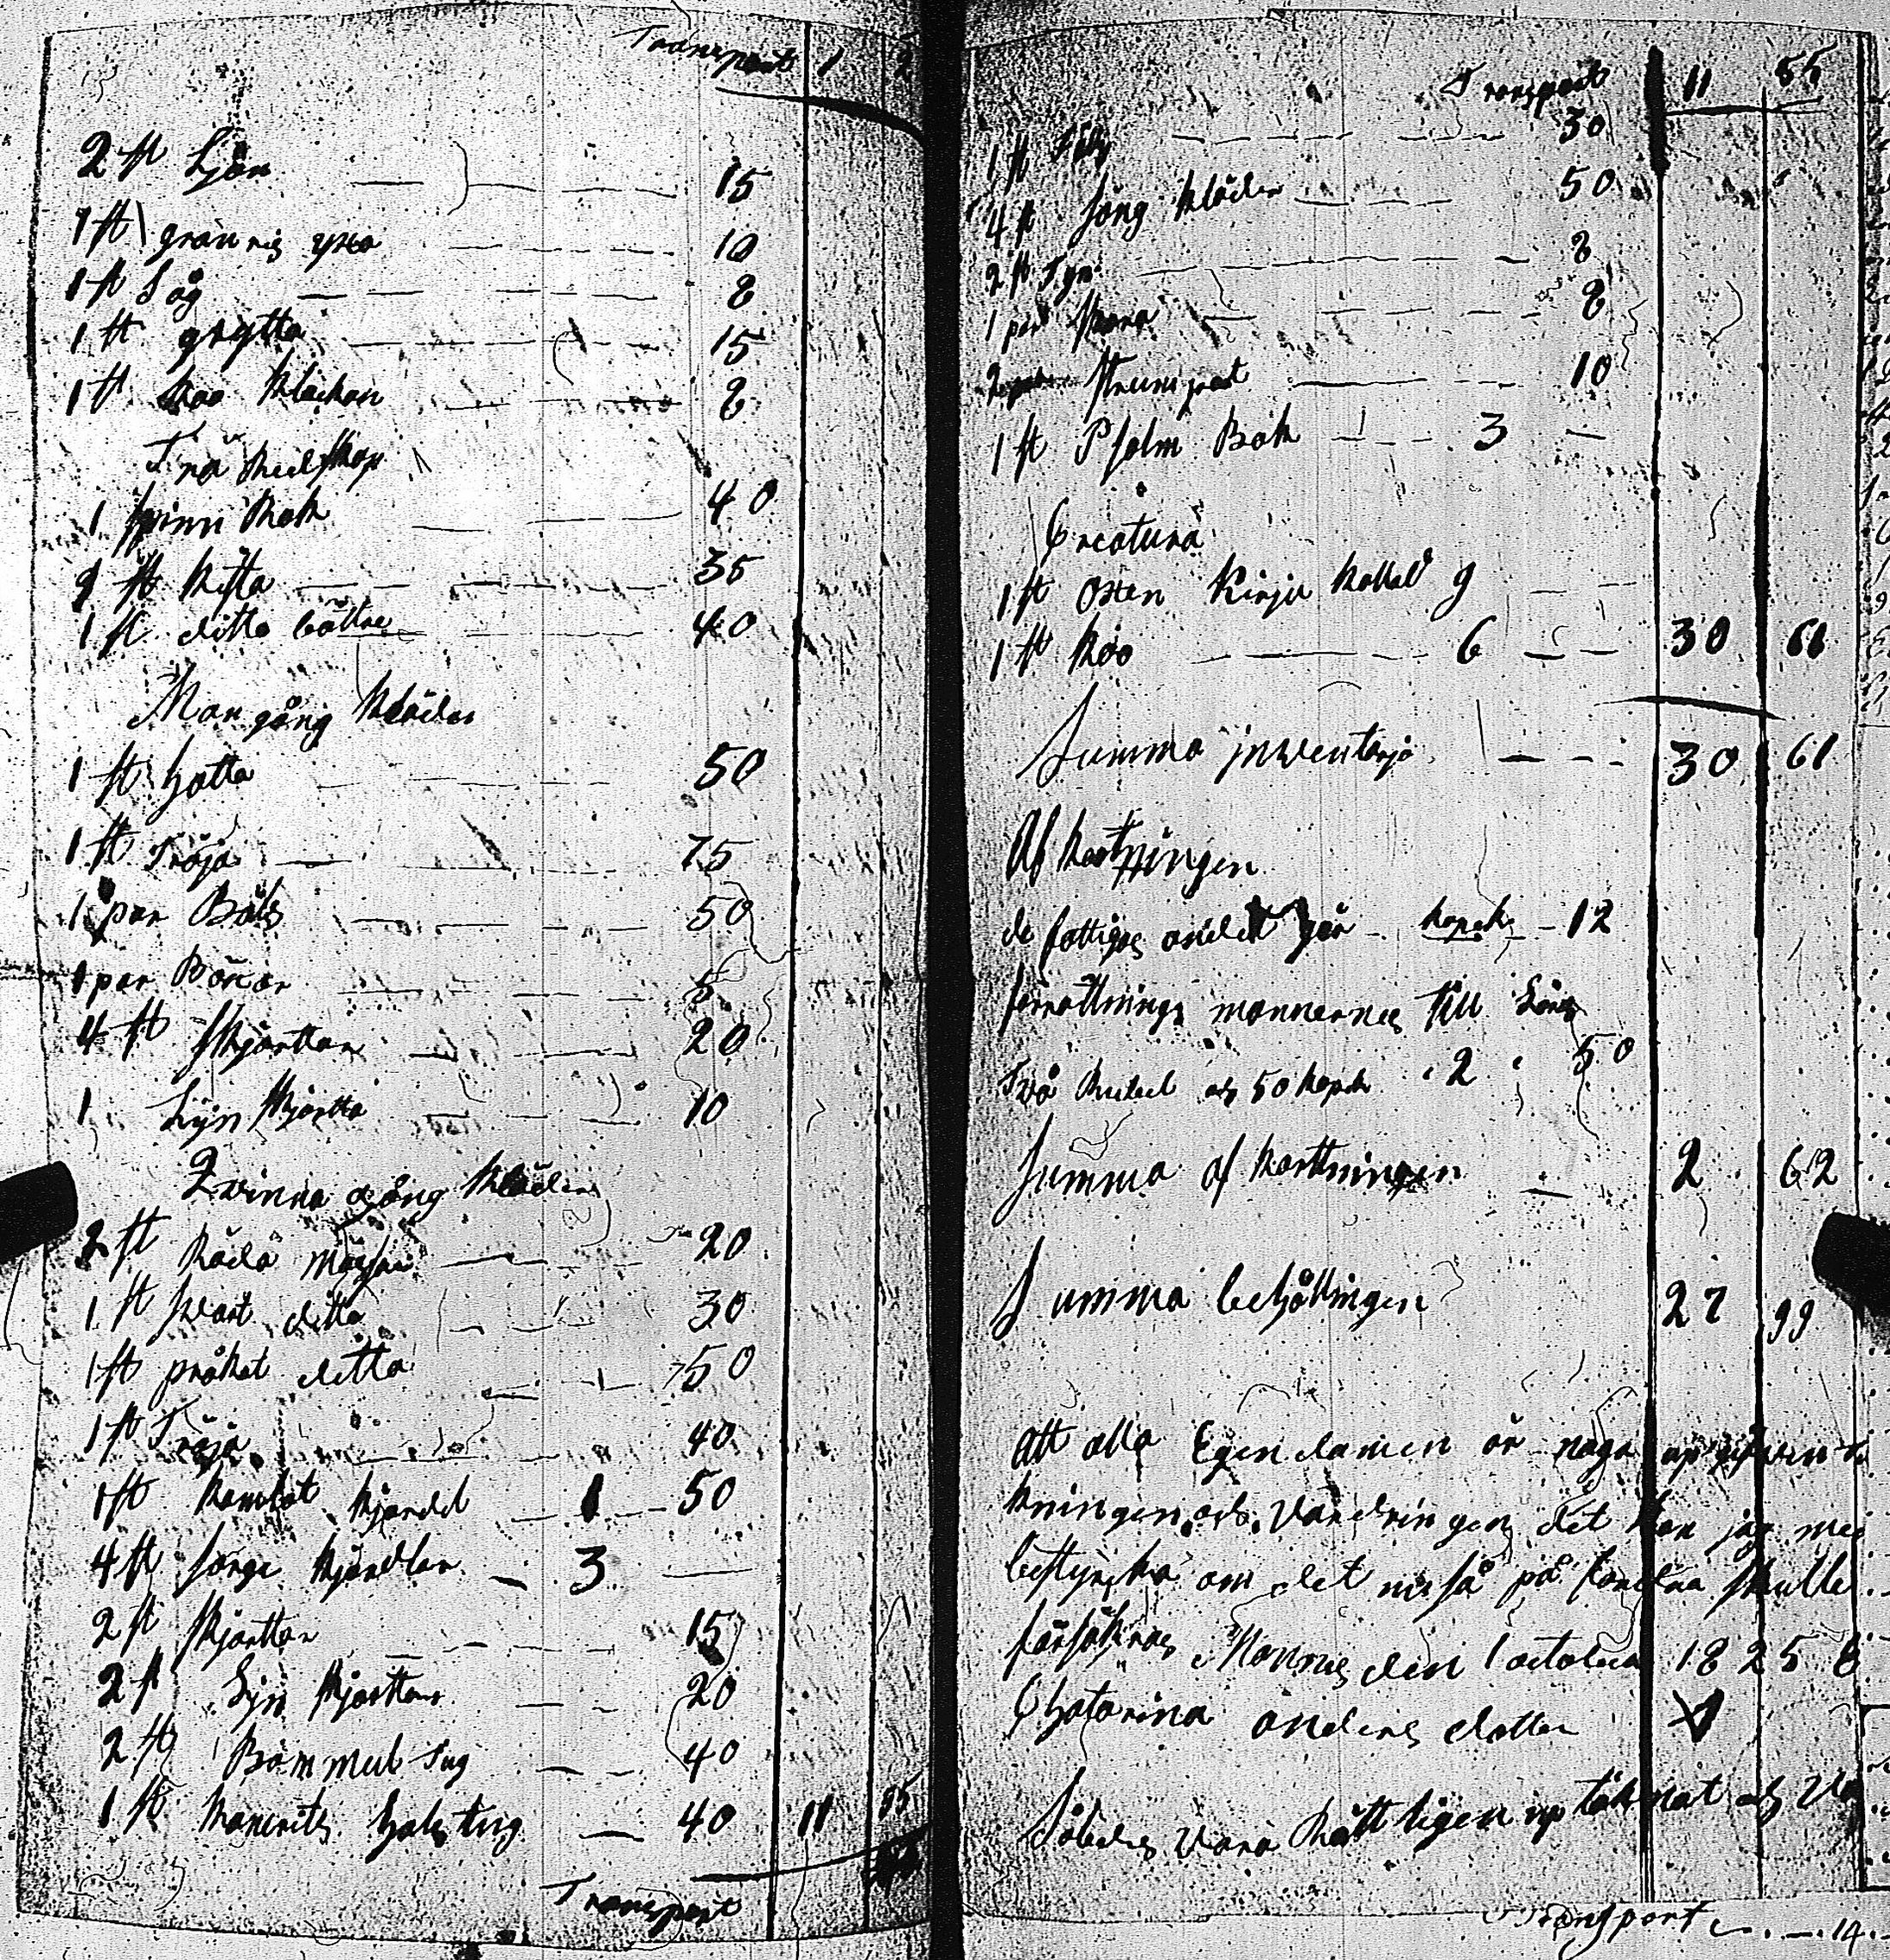 Transport 1 2
2 st Ljôn 15
1 st grän ris yxa 10
1 st Såg 8
1 st grytta 15
1 st koo klåckan 8
Trä Redskap
1 spinn Rok 40
1 st kista 35
1 st ditto bättre 40
Man gång kläder
1 st hatta 50
1 st Tröja 75
1 par Bäls 50
1 par Böxor 5
4 st skjorttor 20
1 Lijn skjortta 10
Qvinna gång kläder
2 st Röda Mössor 20
1 st svart ditto 30
1 st pråkot ditto 50
1 st Tröja 40
1 st kamlåt kjordel 1 50
4 st sorge kjordlar 3
2 st skjorttor 15
2 st Lijn skjorttor 20
2 st Bommul tug 40
1 st halstug 40 11 55
Transport
Transport 11 55
1 st Fäls 30
4 st säng kläder 50
2 st Tyn 8
1 par skona 8
2 par strumpor 10
1 st Psalm Bok 3
Creatura
1 st Oxen kallad 9
1 st koo 6 30 61
Summa inventarjo 30 61
Af kortningen
de fattigas andel gör kopek 12
förrättnings mannernes till Löns
två Rubel och 50 kopek 2 50
Summa af kortningen 2 62
Summa behåttningen 27 99
Att alla Egendamen är noga upgifven
kningen och Värdringen det kan jag med
bestyrka om det nu så på fordras skulle
försäkras Monnäs den 1 octobr 1825
Chatarina Anders dotter
Således vara Rättligen up täknat och
Transport 14